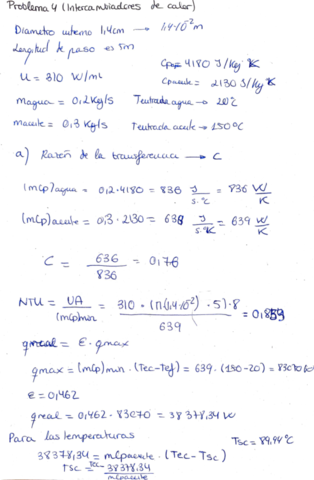 Problema 4 (Intercambiadores de calor)
Diametro interno 1,4cm → 1,4·10⁻² m
Longitud de paso ⇔ 5m
Cpagua = 4180 J/Kg K
U = 310 W/m² Cpaceite = 2130 J/Kg K
magua = 0,2 Kg/s Tentrada agua → 20°C
maceite = 0,3 Kg/s Tentrada aceite → 150°C
a) Razón de la transferencia → C
(mCp)agua = 0,2·4180 = 836 J/s·°C = 836 W/K
(mCp)aceite = 0,3·2130 = 639 J/s·K = 639 W/K
C = 636/836 = 0,76
NTU = UA/(mCp)min = 310·(π(1,4·10⁻²)·5)·8/639 = 0,853
qreal = ε·qmax
qmax = (mCp)min·(Tec-Tef) = 639·(150-20) = 83070 W
ε = 0,462
qreal = 0,462·83070 = 38378,34 W
Para las temperaturas Tsc = 89,94°C
38378,34 = mCpaceite·(Tec-Tsc)
Tsc = Tec - 38378,34/mCpaceite